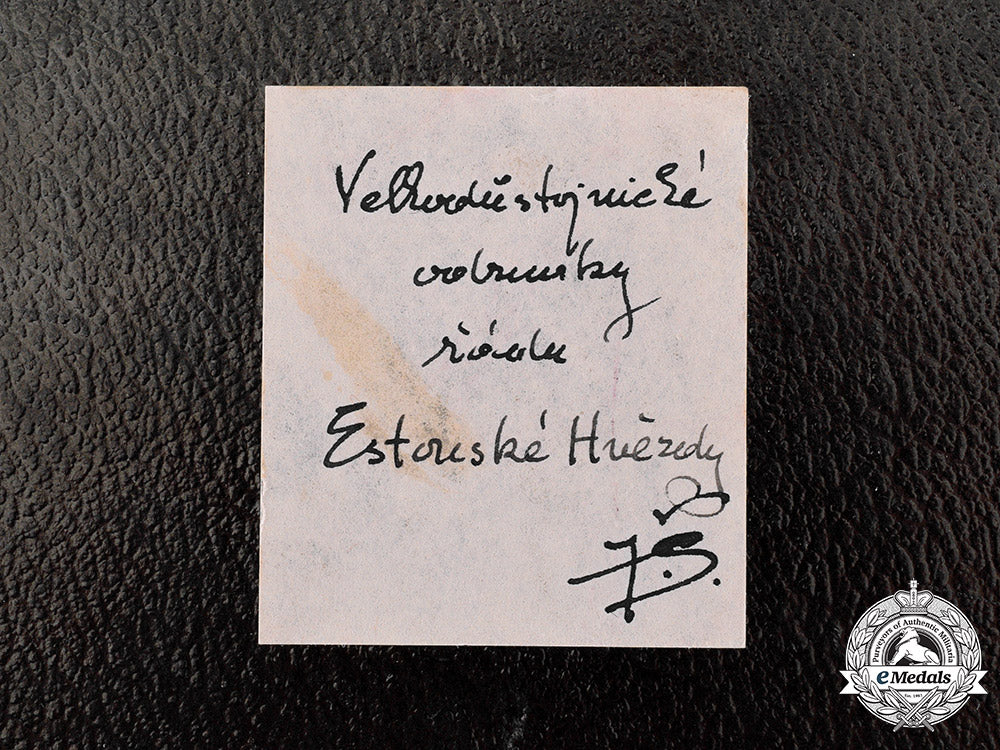 Velkodůstojnické
odznaky
řádu
Estonské Hvězdy
J.Š.
Purveyors of Authentic Militaria
eMedals
Est. 1967